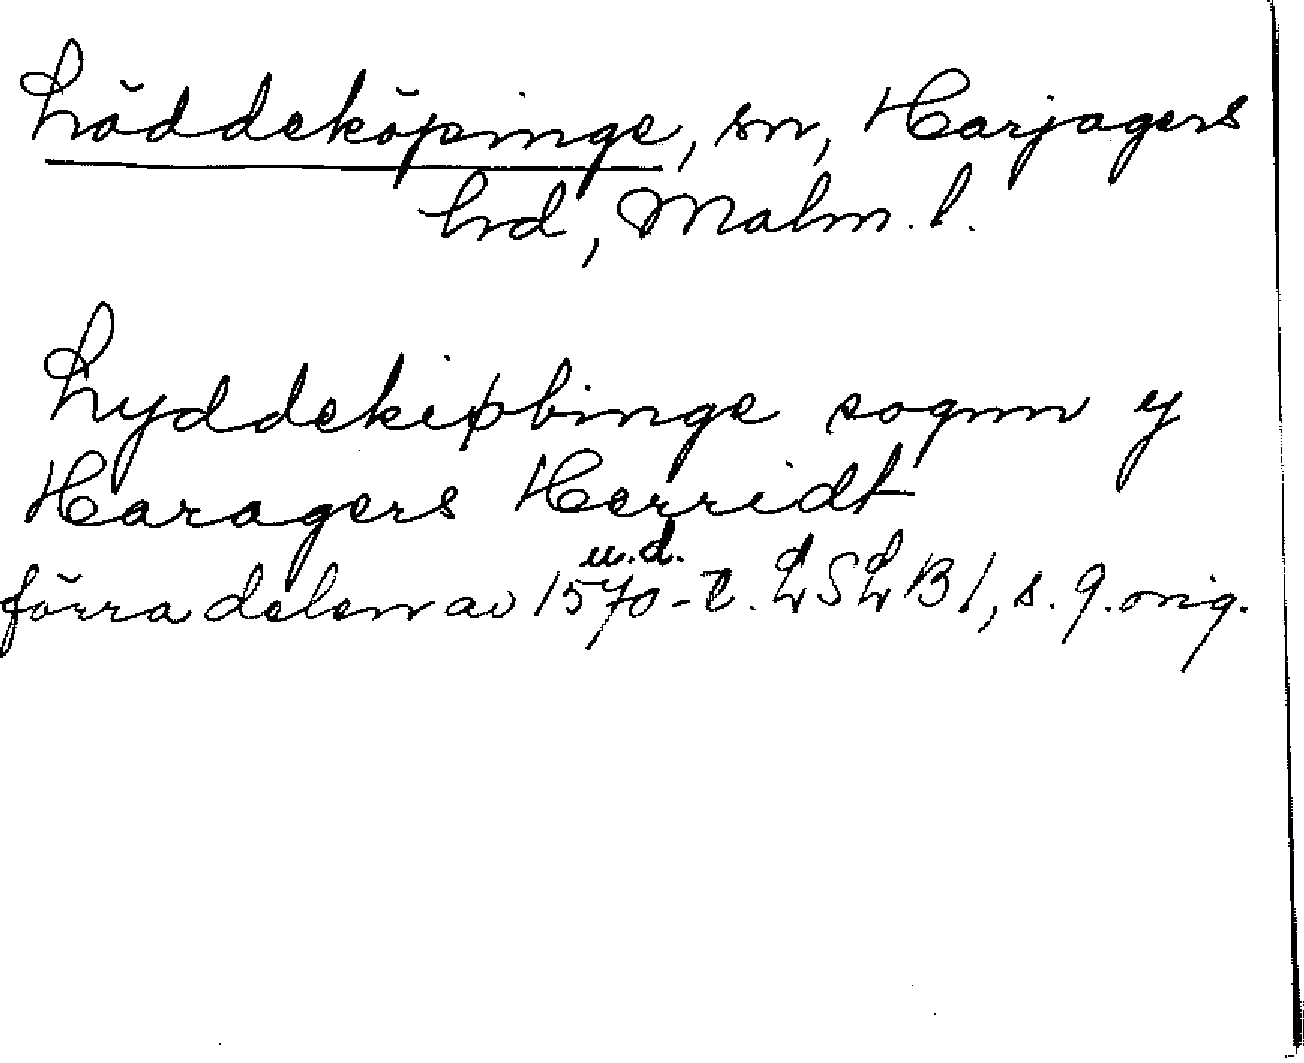 Löddeköpinge, sn, Harjagers
hrd, Malm. l.
Lyddekipbinge sognn y
Haragers Herridt
u.d.
förra delen av 1570-t. LSLB1, s. 9. orig.